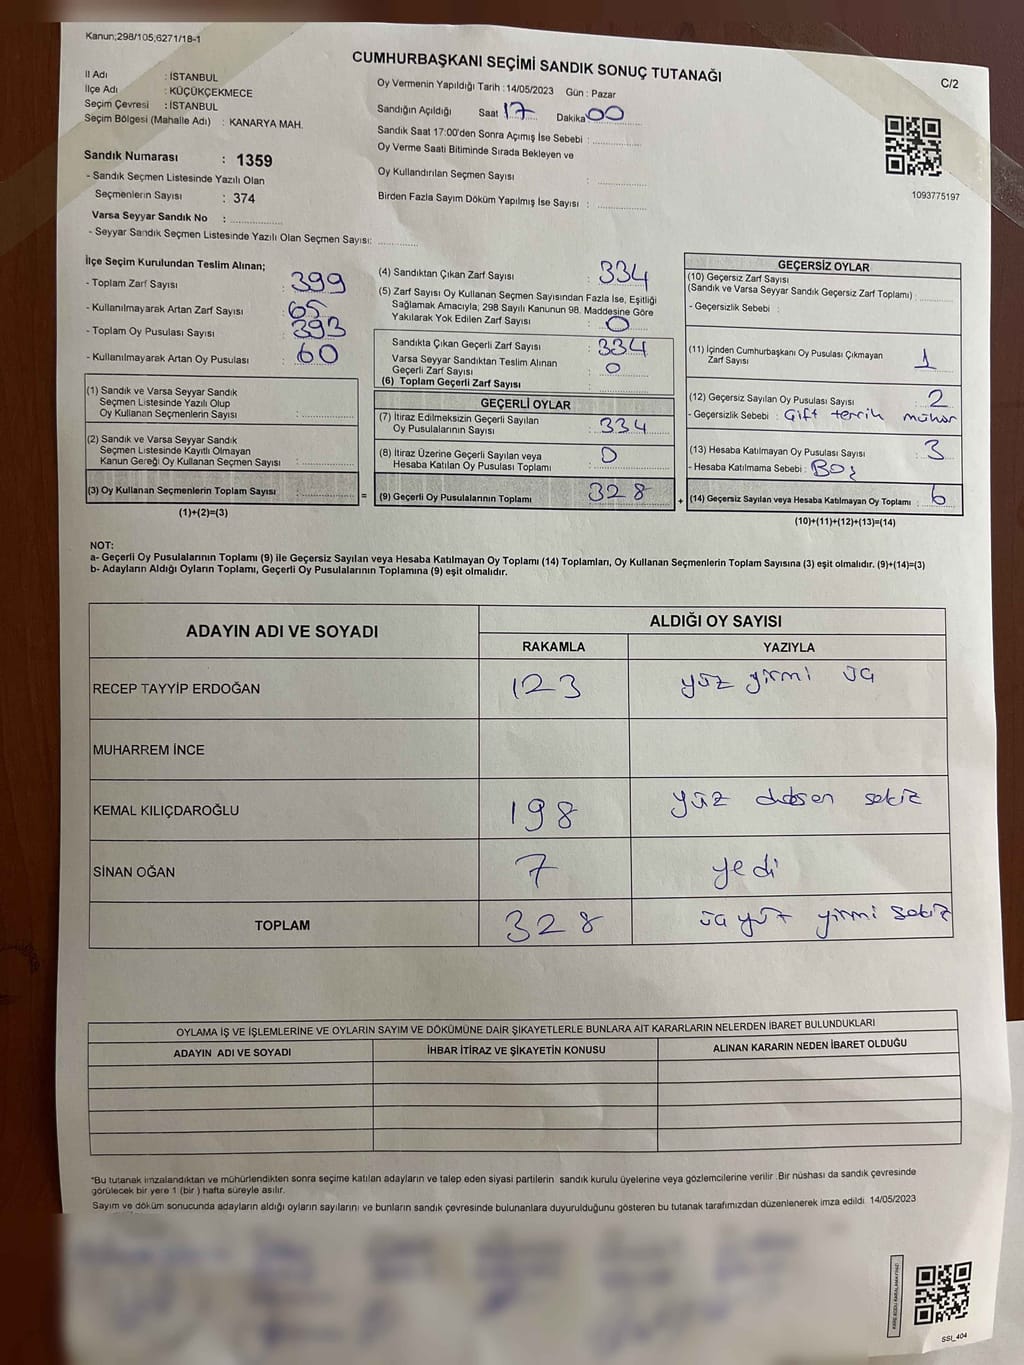 Kanun;298/105,6271/18-1
CUMHURBAŞKANI SEÇİMİ SANDIK SONUÇ TUTANAĞI
C/2
İl Adı : İSTANBUL
İlçe Adı : KÜÇÜKÇEKMECE
Seçim Çevresi : İSTANBUL
Seçim Bölgesi (Mahalle Adı) : KANARYA MAH.
Sandık Numarası : 1359
- Sandık Seçmen Listesinde Yazılı Olan
Seçmenlerin Sayısı : 374
Varsa Seyyar Sandık No :
- Seyyar Sandık Seçmen Listesinde Yazılı Olan Seçmen Sayısı:
Oy Vermenin Yapıldığı Tarih : 14/05/2023 Gün : Pazar
Sandığın Açıldığı Saat 17 Dakika 00
Sandık Saat 17:00'den Sonra Açımış İse Sebebi :
Oy Verme Saati Bitiminde Sırada Bekleyen ve
Oy Kullandırılan Seçmen Sayısı :
Birden Fazla Sayım Döküm Yapılmış İse Sayısı :
1093775197
İlçe Seçim Kurulundan Teslim Alınan;
- Toplam Zarf Sayısı : 399
- Kullanılmayarak Artan Zarf Sayısı : 65
- Toplam Oy Pusulası Sayısı : 393
- Kullanılmayarak Artan Oy Pusulası : 60
(1) Sandık ve Varsa Seyyar Sandık
Seçmen Listesinde Yazılı Olup
Oy Kullanan Seçmenlerin Sayısı :
(2) Sandık ve Varsa Seyyar Sandık
Seçmen Listesinde Kayıtlı Olmayan
Kanun Gereği Oy Kullanan Seçmen Sayısı :
(3) Oy Kullanan Seçmenlerin Toplam Sayısı :
(1)+(2)=(3)
=
(4) Sandıktan Çıkan Zarf Sayısı : 334
(5) Zarf Sayısı Oy Kullanan Seçmen Sayısından Fazla İse, Eşitliği
Sağlamak Amacıyla, 298 Sayılı Kanunun 98. Maddesine Göre
Yakılarak Yok Edilen Zarf Sayısı : 0
Sandıkta Çıkan Geçerli Zarf Sayısı : 334
Varsa Seyyar Sandıktan Teslim Alınan
Geçerli Zarf Sayısı : 0
(6) Toplam Geçerli Zarf Sayısı :
GEÇERLİ OYLAR
(7) İtiraz Edilmeksizin Geçerli Sayılan
Oy Pusulalarının Sayısı : 334
(8) İtiraz Üzerine Geçerli Sayılan veya
Hesaba Katılan Oy Pusulası Toplamı : 0
(9) Geçerli Oy Pusulalarının Toplamı : 328
+
GEÇERSİZ OYLAR
(10) Geçersiz Zarf Sayısı
(Sandık ve Varsa Seyyar Sandık Geçersiz Zarf Toplamı) :
- Geçersizlik Sebebi :
(11) İçinden Cumhurbaşkanı Oy Pusulası Çıkmayan
Zarf Sayısı : 1
(12) Geçersiz Sayılan Oy Pusulası Sayısı : 2
- Geçersizlik Sebebi : Çift tercih mühür
(13) Hesaba Katılmayan Oy Pusulası Sayısı : 3
- Hesaba Katılmama Sebebi : Boş
(14) Geçersiz Sayılan veya Hesaba Katılmayan Oy Toplamı : 6
(10)+(11)+(12)+(13)=(14)
NOT:
a- Geçerli Oy Pusulalarının Toplamı (9) ile Geçersiz Sayılan veya Hesaba Katılmayan Oy Toplamı (14) Toplamları, Oy Kullanan Seçmenlerin Toplam Sayısına (3) eşit olmalıdır. (9)+(14)=(3)
b- Adayların Aldığı Oyların Toplamı, Geçerli Oy Pusulalarının Toplamına (9) eşit olmalıdır.
ADAYIN ADI VE SOYADI
ALDIĞI OY SAYISI
RAKAMLA YAZIYLA
RECEP TAYYİP ERDOĞAN 123 yüz yirmi üç
MUHARREM İNCE
KEMAL KILIÇDAROĞLU 198 yüz doksan sekiz
SİNAN OĞAN 7 yedi
TOPLAM 328 üç yüz yirmi sekiz
OYLAMA İŞ VE İŞLEMLERİNE VE OYLARIN SAYIM VE DÖKÜMÜNE DAİR ŞİKAYETLERLE BUNLARA AİT KARARLARIN NELERDEN İBARET BULUNDUKLARI
ADAYIN ADI VE SOYADI İHBAR İTİRAZ VE ŞİKAYETİN KONUSU ALINAN KARARIN NEDEN İBARET OLDUĞU
*Bu tutanak imzalandıktan ve mühürlendikten sonra seçime katılan adayların ve talep eden siyasi partilerin sandık kurulu üyelerine veya gözlemcilerine verilir .Bir nüshası da sandık çevresinde
görülecek bir yere 1 (bir ) hafta süreyle asılır.
Sayım ve döküm sonucunda adayların aldığı oyların sayılarını ve bunların sandık çevresinde bulunanlara duyurulduğunu gösteren bu tutanak tarafımızdan düzenlenerek imza edildi. 14/05/2023
SSI_404